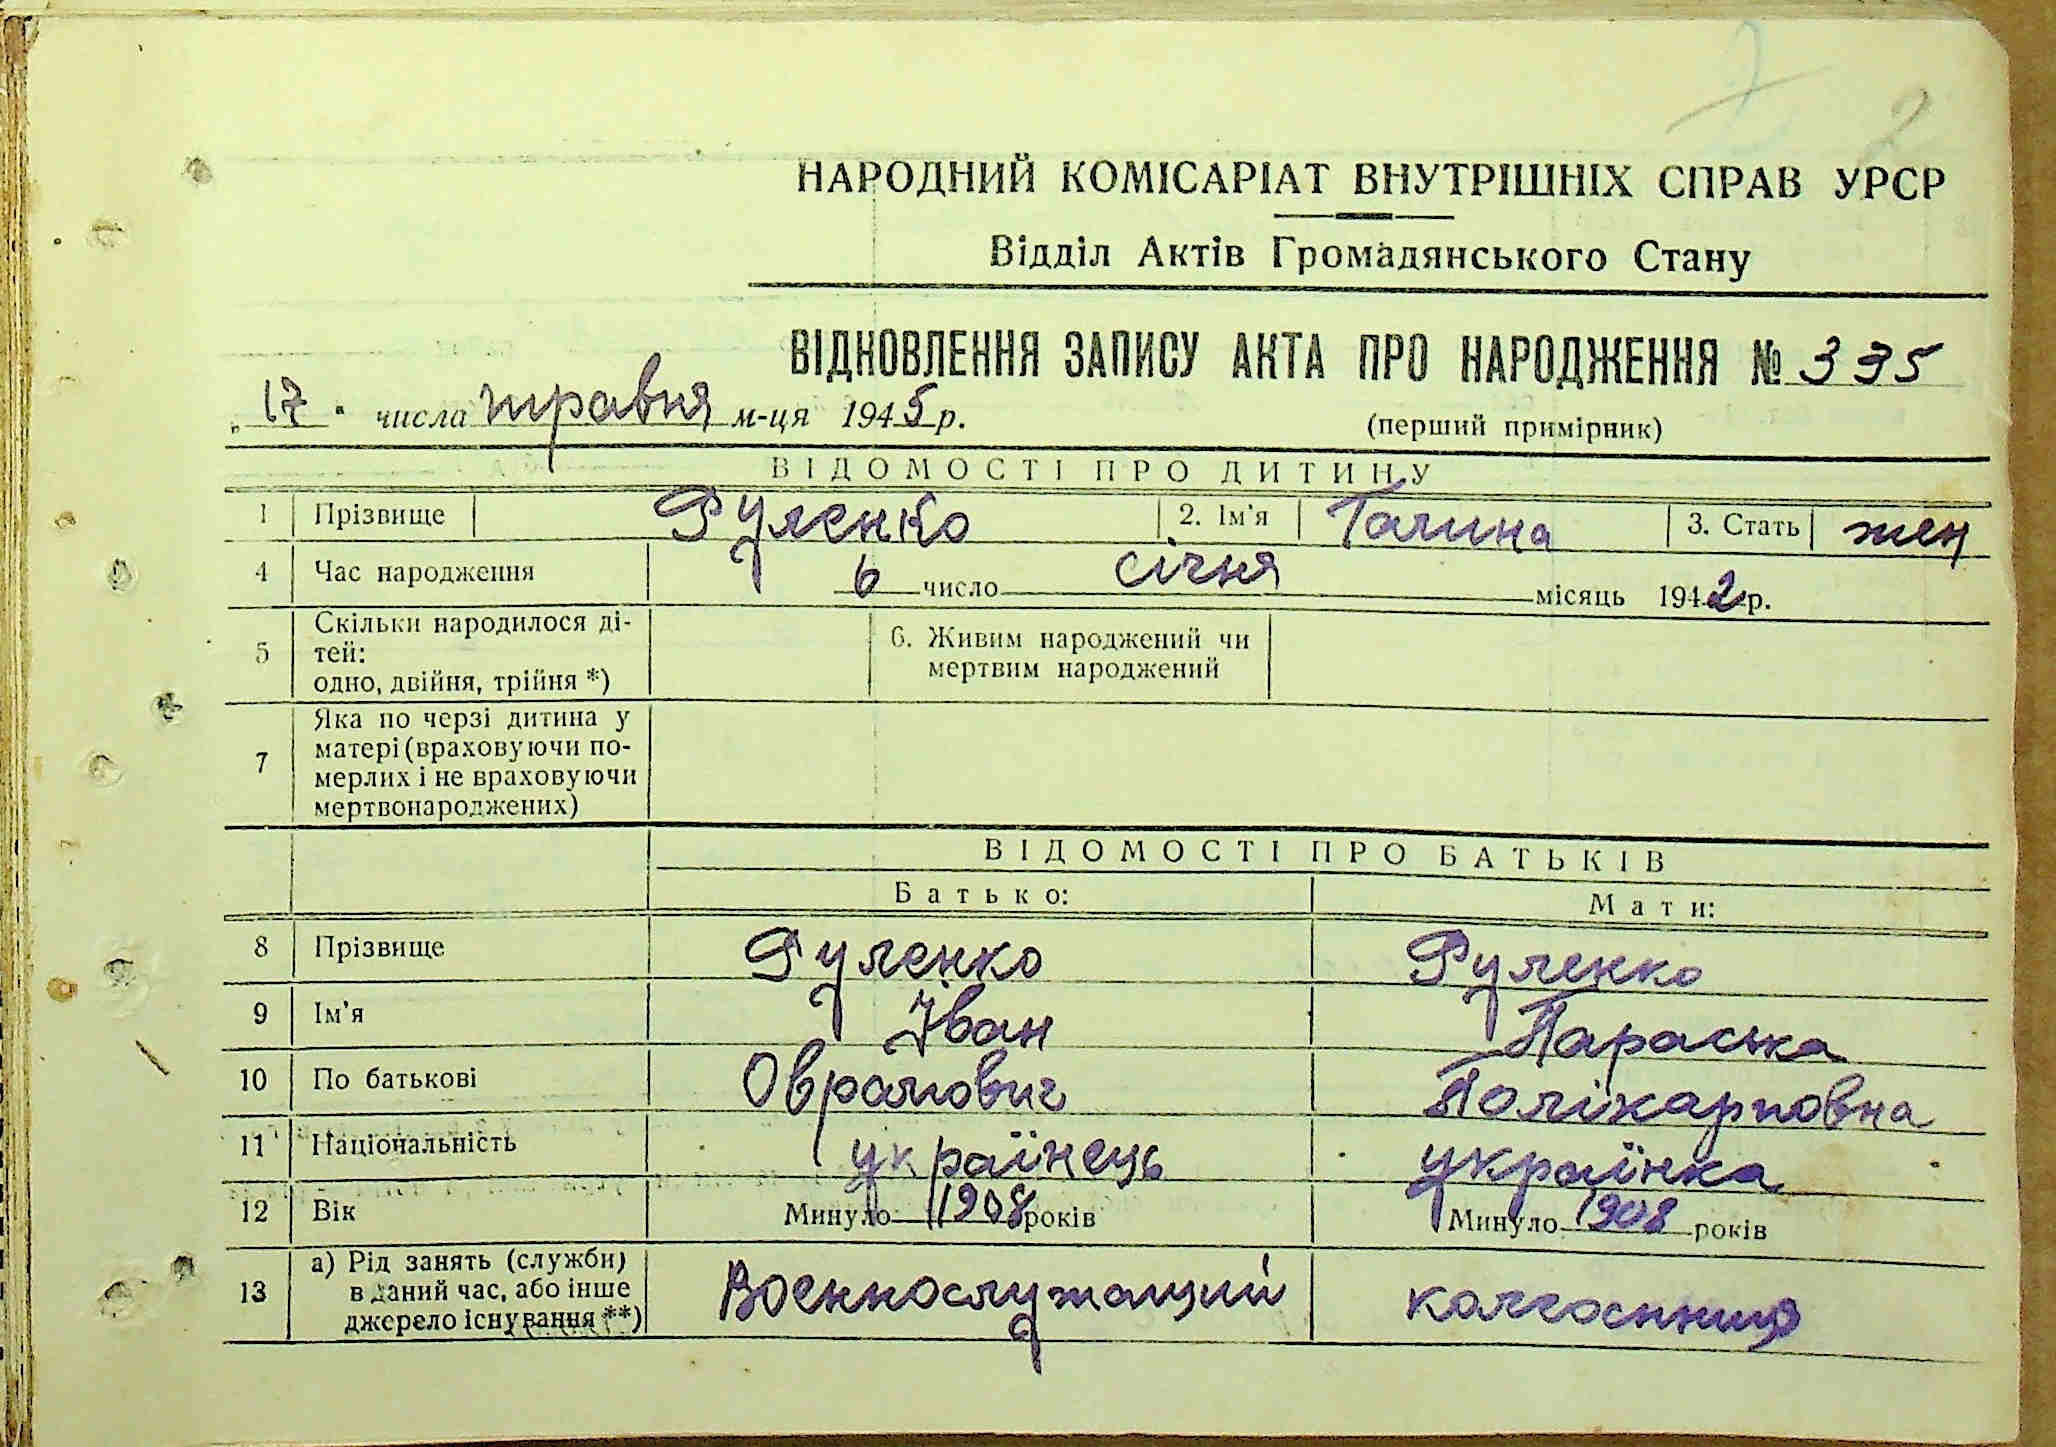 2
НАРОДНИЙ КОМІСАРІАТ ВНУТРІШНІХ СПРАВ УРСР
Відділ Актів Громадянського Стану
ВІДНОВЛЕННЯ ЗАПИСУ АКТА ПРО НАРОДЖЕННЯ № 335
„17" числа травня м-ця 1945 р.
(перший примірник)
ВІДОМОСТІ ПРО ДИТИНУ
1 Прізвище Руленко 2. Ім'я Галина 3. Стать жен
4 Час народження 6 число січня місяць 1942 р.
5 Скільки народилося ді-
тей:
одно, двійня, трійня *)
6. Живим народжений чи
мертвим народжений
7 Яка по черзі дитина у
матері (враховуючи по-
мерлих і не враховуючи
мертвонароджених)
ВІДОМОСТІ ПРО БАТЬКІВ
Батько: Мати:
8 Прізвище Руленко Руленко
9 Ім'я Іван Параська
10 По батькові Оврамович Полікарповна
11 Національність українець українка
12 Вік Минуло 1908 років Минуло 1908 років
13 а) Рід занять (служби)
в даний час, або інше
джерело існування **)
Военнослужащий колгоспниця